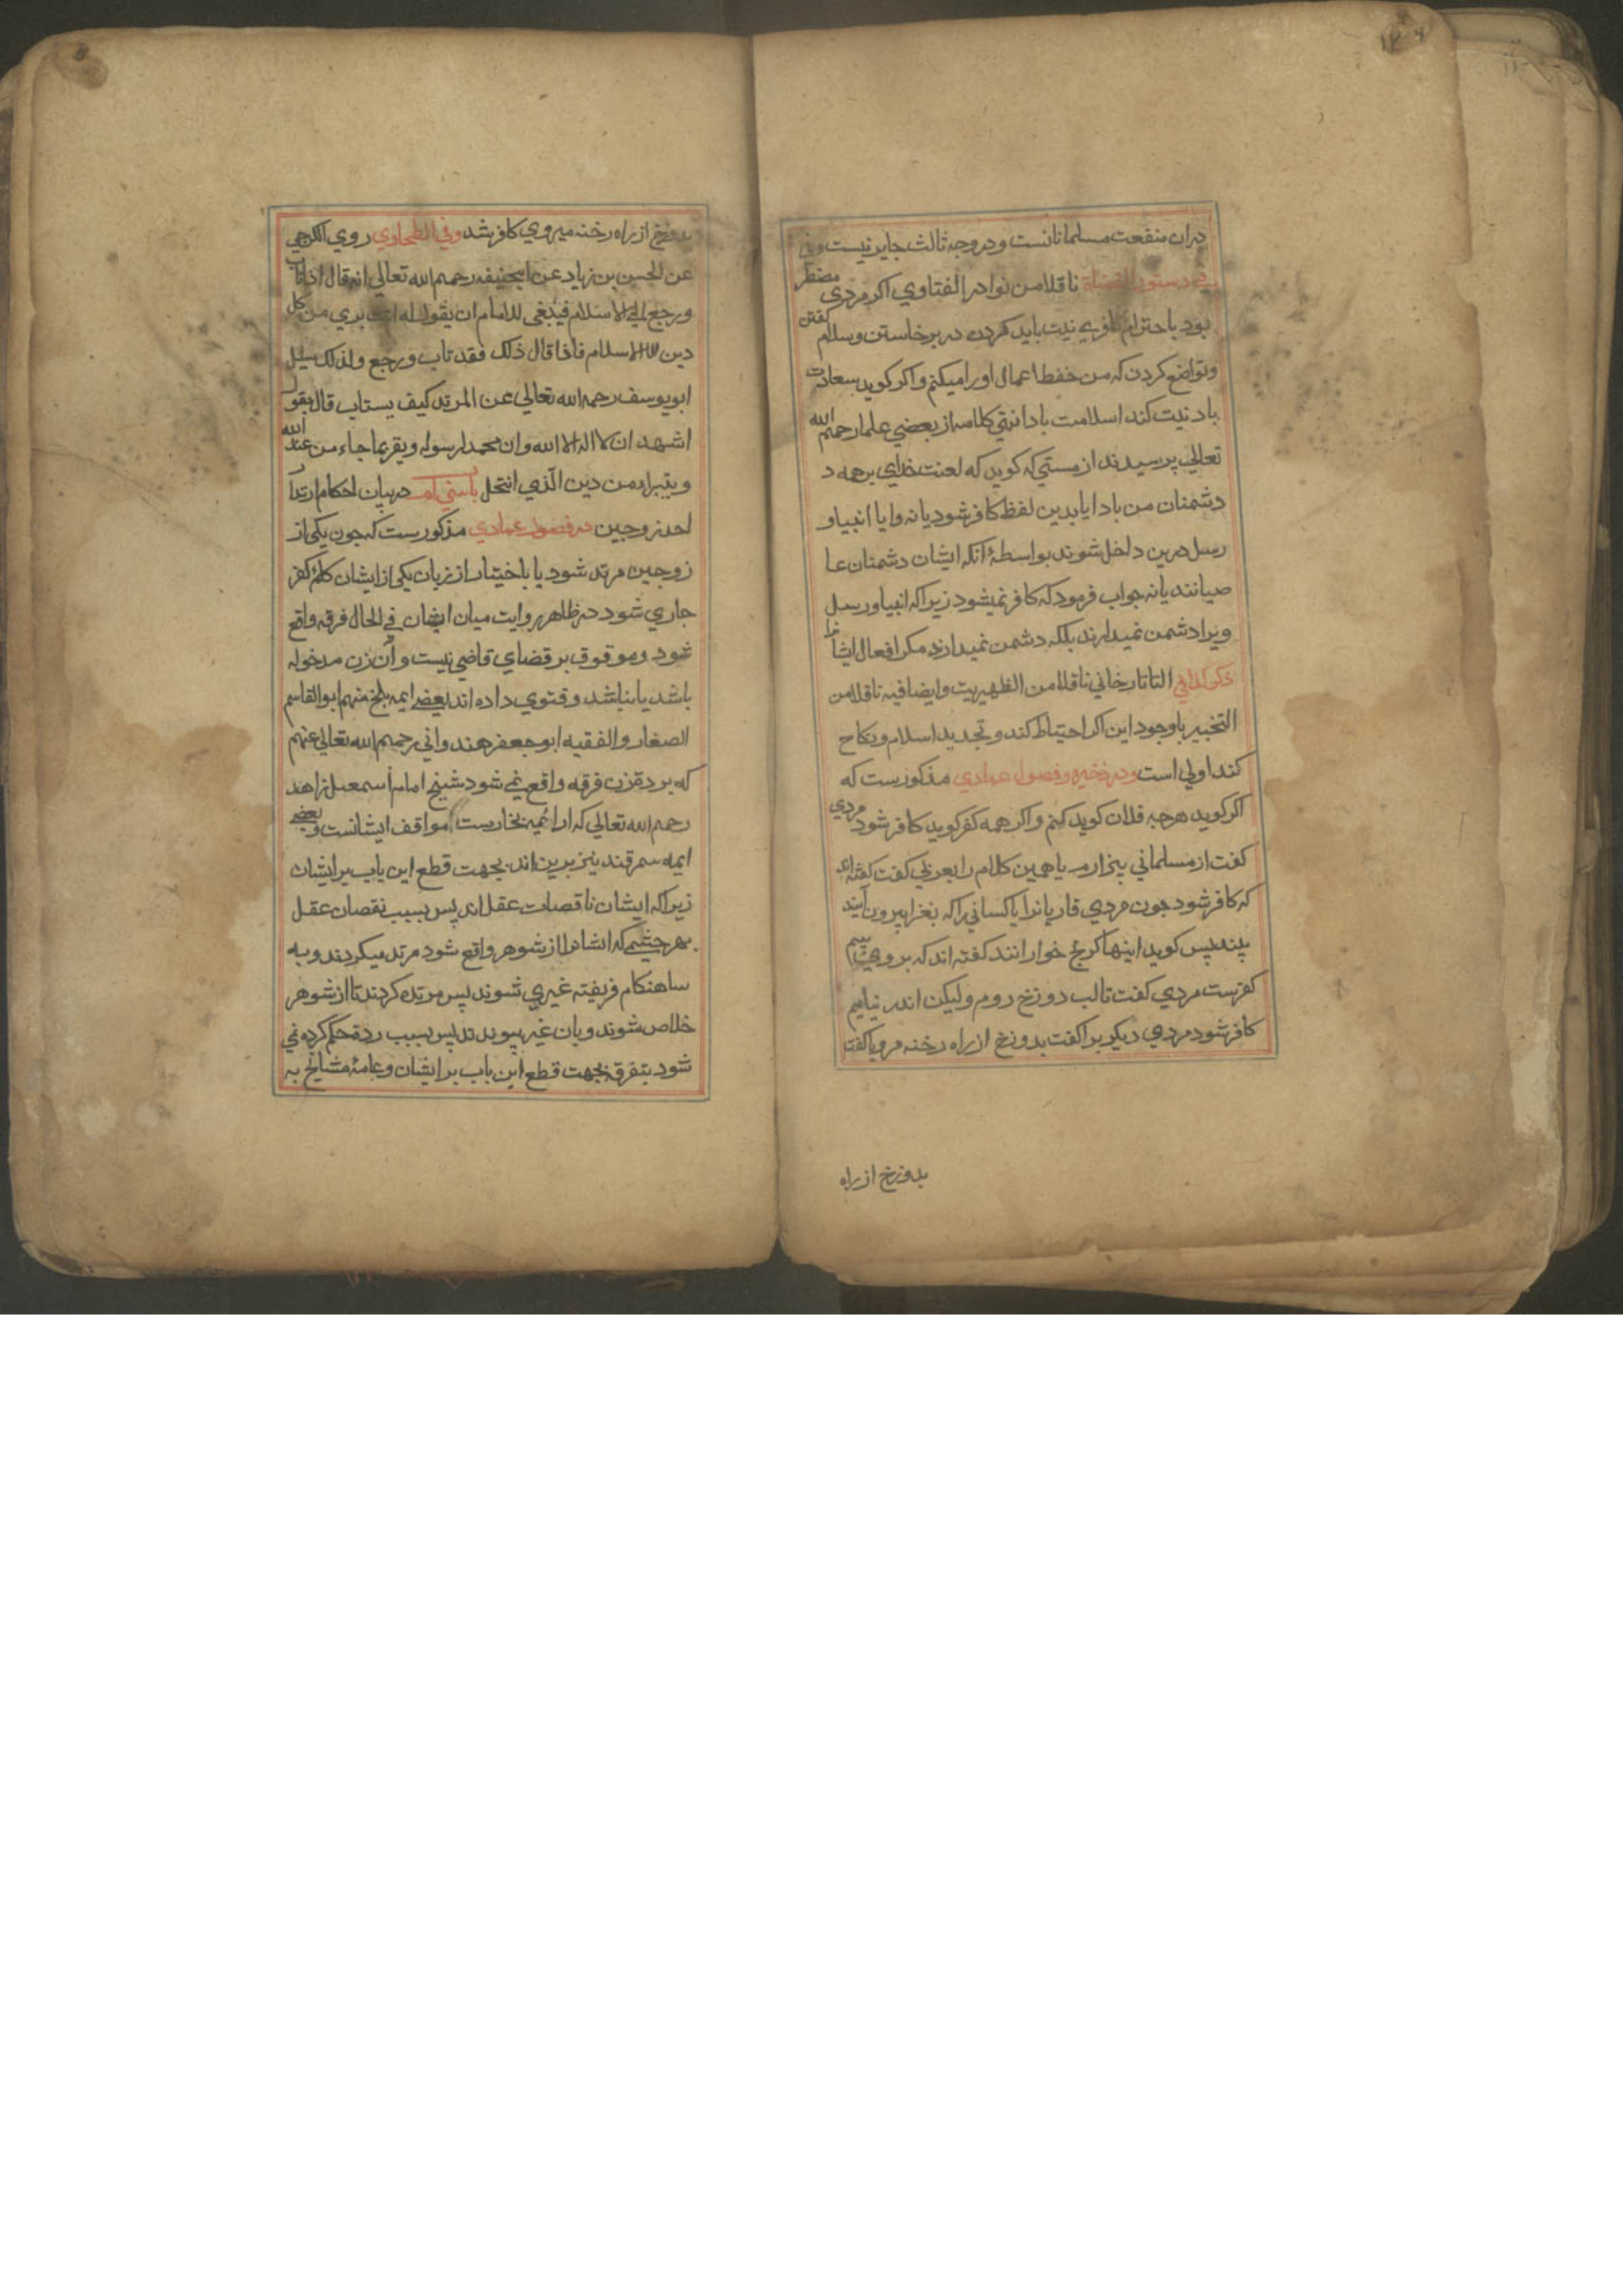 ۱۲۶
دران منفعت مسلمانانست و در وجه ثالث جایز نیست وفی
دستور القضاة ناقلا من نوادر الفتاوی اکر مردی مضطر
بود باحترام کافری نیت باید کردن در برخاستن وسلام کفتن
وتواضع کردن که من حفط اعمال اورا میکنم واکر کوید سعادت
باد نیت کند اسلامت باد انتهی کلامه از بعضی علما رحمهم الله
تعالی پرسیدند از مستی که کوید که لعنت خدای برهمه د
دشمنان من باد ایا بدین لفظ کافر شود یا نه وایا انبیا و
رسل درین داخل شوند بواسطهٔ آنکه ایشان دشمنان عا
صیانند یا نه جواب فرمود که کافر نمیشود زیرا که انبیا ورسل
ویرا دشمن نمیدارند بلکه دشمن نمیدارند مکر افعال ایشانرا
ذکر کذا فی التاتارخانی ناقلا من الظهیریت وایضا فیه ناقلا من
التخبیر باوجود این اکر احتیاط کند و تجدید اسلام ونکاح
کند اولی است ودر ذخیره وفصول عمادی مذکورست که
اکر کوید هرچه فلان کوید کنم واکر همه کفر کوید کافر شود مردی
کفت از مسلمانی بیزارم یا همین کلام را بعربی کفت کفته اند
که کافر شود چون مردی قاریانرا یا کسانی را که بغزا بیرون آیند
بیند پس کوید اینها کرنج خوارانند کفته اند که بروی بیم
کفرست مردی کفت تا لب دوزخ روم ولیکن اندر نیایم
کافر شود مردی دیکر برا کفت بدوزخ از راه رخنه مرو یا کفت
بدوزخ از راه
بدوزخ از راه رخنه میروی کافر شد وفی الطحاوی روی الکرخی
عن الحسن بن زیاد عن ابیحنیفه رحمهم الله تعالی انه قال اذا تاب
ورجع الی الاسلام فینبغی للامام ان یقول له انت بری من کل
دین الا الاسلام فاذا قال ذلک فقد تاب ورجع ولذلک سئل
ابویوسف رحمه الله تعالی عن المرتد کیف یستاب قال یقول
اشهد ان لا اله الا الله وان محمدا رسوله ویقر بما جاء من عند الله
ویتبراء من دین الذی انتحل در بیان احکام ارتداد
احد زوجین در فصول عمادی مذکورست که چون یکی از
زوجین مرتد شود یا باختیار از زبان یکی از ایشان کلمهٔ کفر
جاری شود در ظاهر روایت میان ایشان فی الحال فرقه واقع
شود وموقوف بر قضای قاضی نیست وآن زن مدخوله
باشد یا نباشد وفتوی داده اند بعضی ایمه بلخ منهم ابوالقاسم
الصفار والفقیه ابوجعفر هندوانی رحمهم الله تعالی عنهم
که برده زن فرقه واقع نمی شود شیخ امام اسمعیل زاهد
رحمه الله تعالی که از ائمیه بخارست موافق ایشانست وبعضی
ایمه سمرقند نیز برین اند بجهت قطع این باب بر ایشان
زیرا که ایشان ناقصات عقل اند پس بسبب نقصان عقل
بهر خشمی که ایشانرا از شوهر واقع شود مرتد میکردند و به
ساهنکام فریفته غیری شوند پس مرتده کردند تا از شوهر
خلاص شوند وبان غیر پیوندند پس بسبب ردة حکم کرده نمی
شود بتفرقه بجهت قطع این باب بر ایشان وعامهٔ مشایخ به